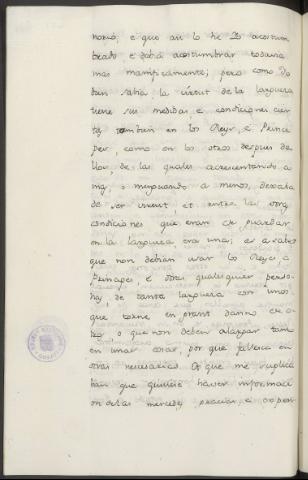 norio, e que asi lo he Yo acostum
brado, e debia acostumbrar todavia
mas manificamente; pero como Yo
bien sabia la virtut de la largueza
tiene sus medidas, e condiciones, cier
tas, tambien en los Reyes, e Princi
pes, como en los otros despues de
llos, de las quales acrescentando a
mas, o menguando a menos, dexaba
de ser virtut, et entre las otras
condiciones que eran de guardar
en la largueza era una; es a saber
que non debian usar los Reyes, e
Principes, e otras qualesquier perso
nas, de tanta largueza con unos
que torne en grant danno de o
tros o que non deben alargar tanto
en unas cosas, por que fallesca en
otras necesarias. Et que me suplica
ban que quisiese haver informaci
on de las mercedes, gracias, e expen